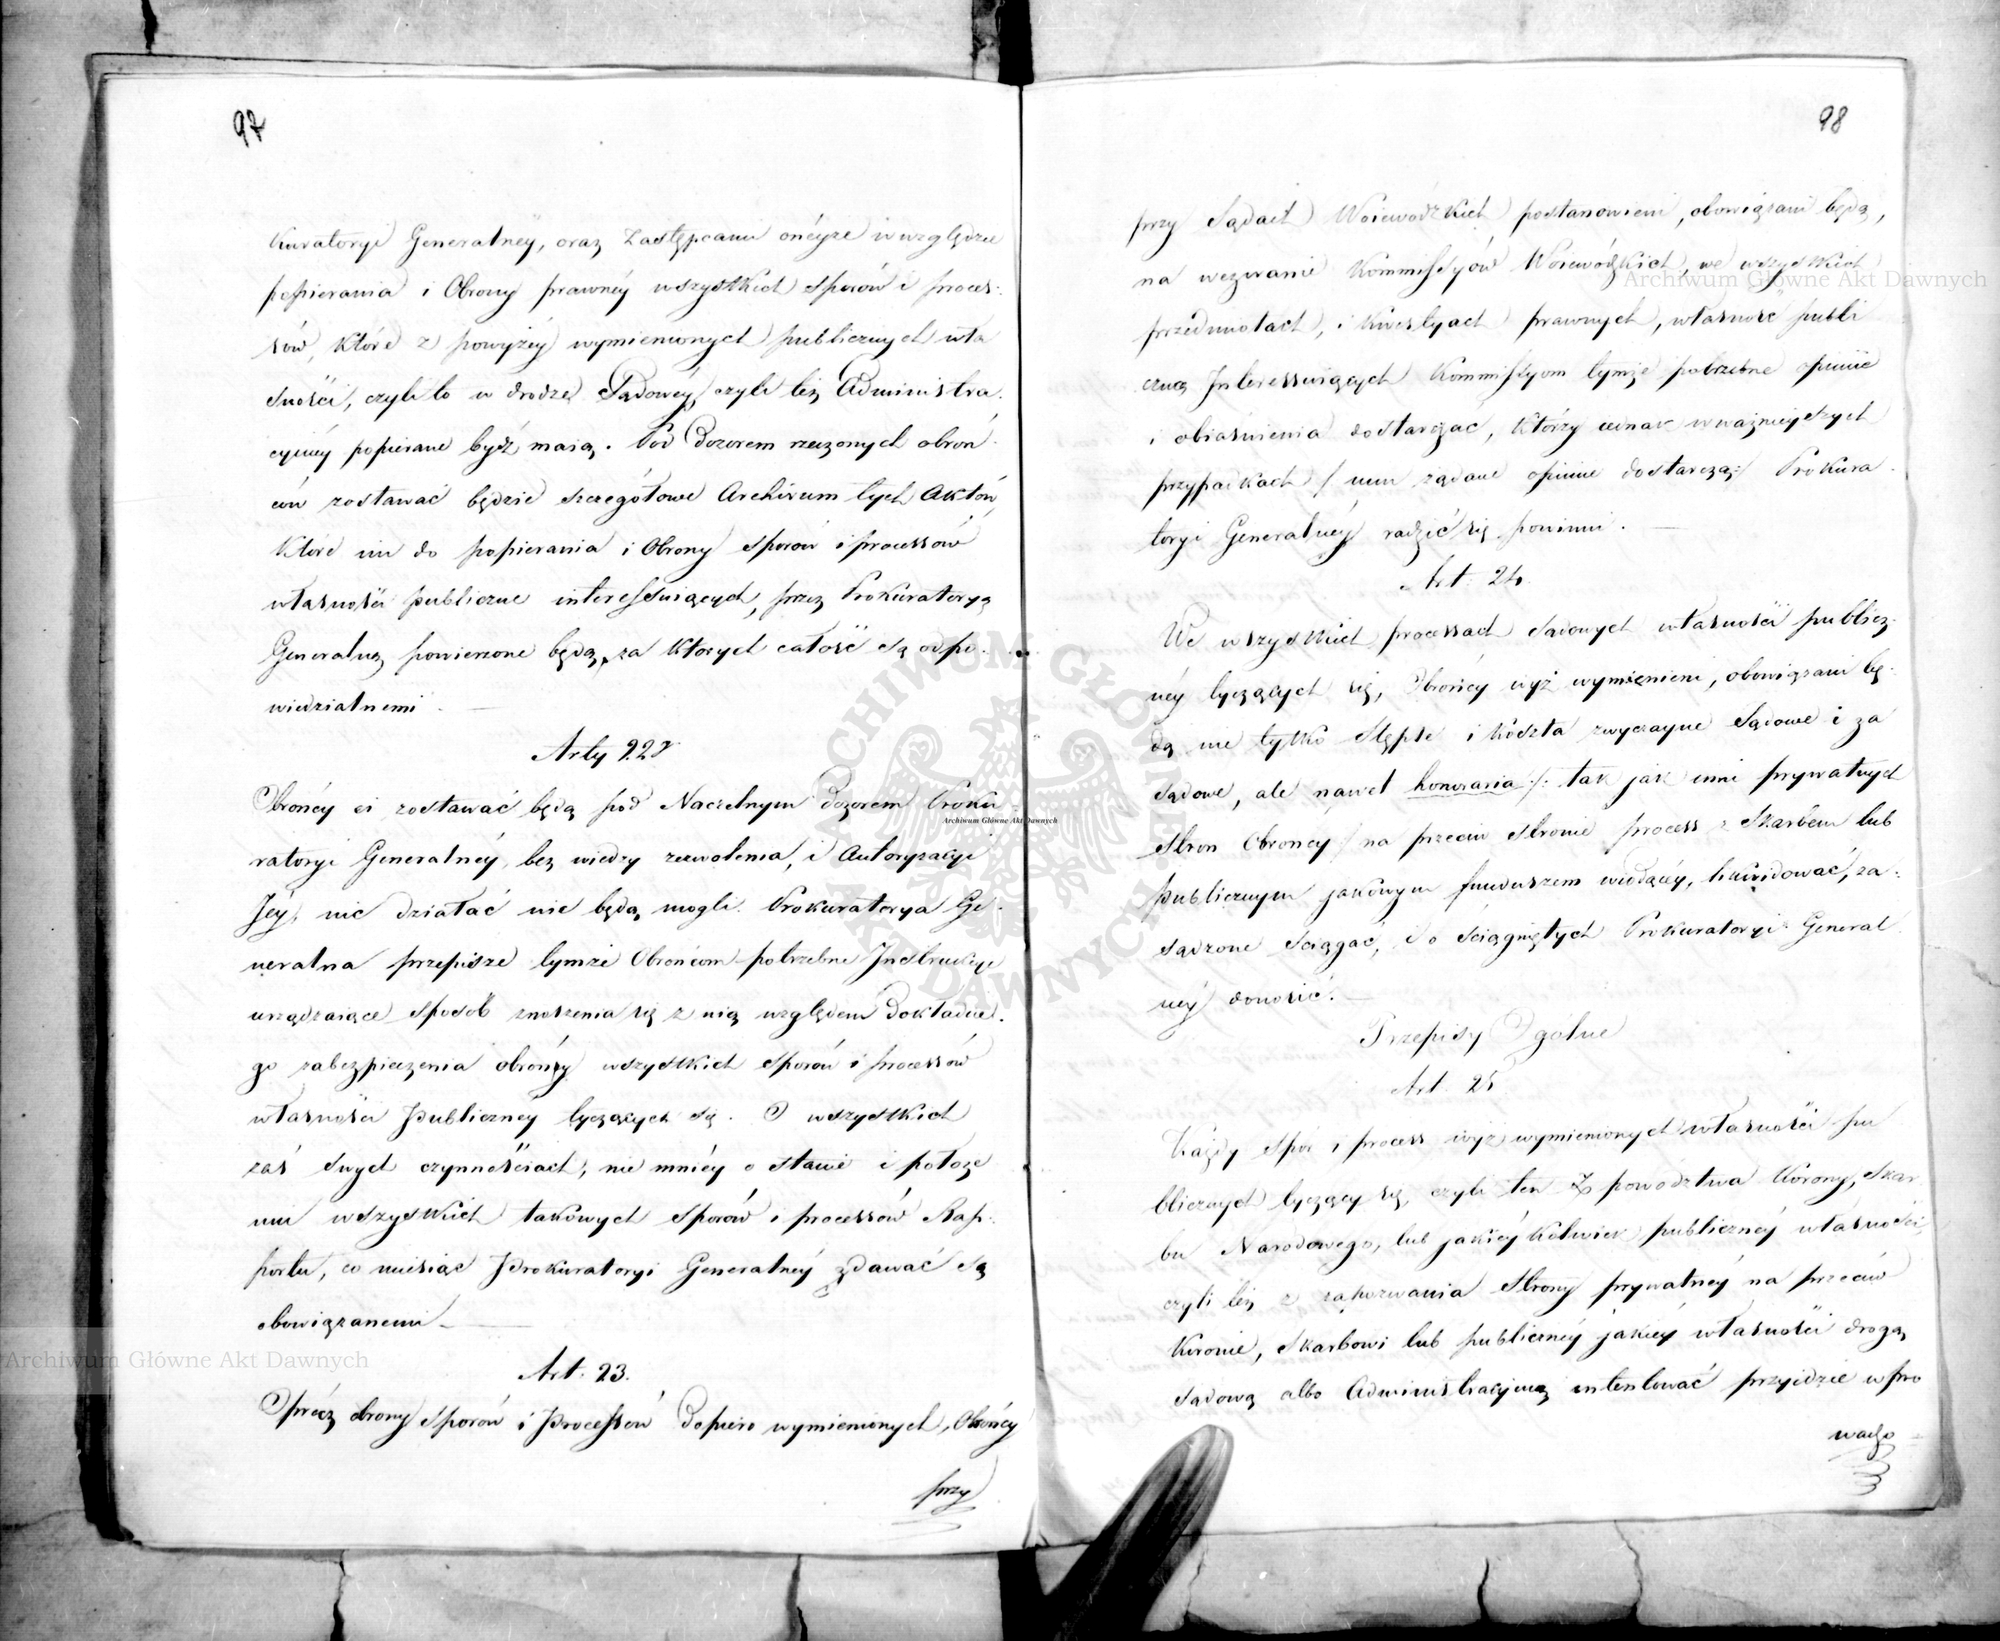 97
kuratoryi Generalnéy, oraz Zastępcami onéyże w względzie
popierania i Obrony prawnéy wszystkich sporów i proces-
sów, które z powyżéy wymienionych publicznych wła
sności, czyli to w drodze Sądowéy, czyli też Administra-
cyinéy popierane bydź maią. Pod Dozorem rzeczonych obroń-
ców zostawać będzie szczegółowe Archivum tych Aktów,
które im do popierania i Obrony sporów i processów
własności publiczne interessuiących, przez Prokuratoryą
Generalną powierzone będą, za których całość są odpo-
wiedzialnemi.
Arty 22gi
Obrońcy ci zostawać będą pod Naczelnym Dozorem Proku-
ratoryi Generalnéy, bez wiedzy zezwolenia, i Autoryzacyi
Jéy, nic działać nie będą mogli. Prokuratorya Ge-
neralna przepisze tymże Obrońcom potrzebne Instrukcye
urządzaiące sposób znoszenia się z nią względem Dokładne-
go zabezpieczenia obrony wszystkich sporów i processów
własności Publicznéy tyczących są. O wszystkich
zaś swych czynnościach, nie mniéy o stanie i położe
niu wszystkich takowych sporów i processów Rap-
portu, co miesiąc Prokuratoryi Generalnéy zdawać są
obowiązanemi
Art. 23.
Oprócz obrony sporów i Processów dopiero wymienionych, Obrońcy
przy
98
przy Sądach Woiewódzkich postanowieni, obowiązani będą,
na wezwanie Kommissyów Woiewódzkich, we wszystkich
przedmiotach, i kwestyach prawnych, własność publi
czną Interessuiących Kommissyom tymże potrzebne opinie
i obiaśnienia dostarczać, którzy iednak w ważnieyszych
przypadkach / nim żądane opinie dostarczą:/ Prokura-
toryi Generalnéy radzić się powinni.
Art. 24.
We wszystkich processach sądowych własności publicz-
néy tyczących się, Obrońcy wyż wymienieni, obowiązani bę-
dą nie tylko Stęple i koszta zwyczayne Sądowe i za
sądowe, ale nawet honoraria /: tak jak inni prywatnych
stron Obrońcy / na przeciw stronie process z Skarbem lub
publicznym jakowym funduszem wiodącéy, likwidować, za-
sądzone ściągać, i o ściągniętych Prokuratoryi General
néy donosić.
Przepisy Ogólne
Art. 25
Każdy spór i process wyż wymienionych własności pu
blicznych tyczący się, czyli ten z powództwa Korony, Skar
bu Narodowego, lub jakiéykolwiek publicznéy własności
czyli też z zapozwania Strony prywatnéy na przeciw
Koronie, Skarbowi lub publicznéy jakiéy własności drogą
sądową albo Administracyiną intentować przyidzie w pro
wadzo
Archiwum Główne Akt Dawnych
Archiwum Główne Akt Dawnych
Archiwum Główne Akt Dawnych
ARCHIWUM GŁÓWNE AKT DAWNYCH